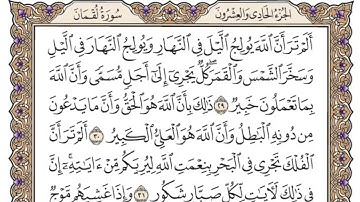 الجزء الحادي والعشرون
سورة لقمان
أَلَمْ تَرَ أَنَّ ٱللَّهَ يُولِجُ ٱلَّيْلَ فِى ٱلنَّهَارِ وَيُولِجُ ٱلنَّهَارَ فِى ٱلَّيْلِ
وَسَخَّرَ ٱلشَّمْسَ وَٱلْقَمَرَ كُلٌّ يَجْرِىٓ إِلَىٰٓ أَجَلٍ مُّسَمًّى وَأَنَّ ٱللَّهَ
بِمَا تَعْمَلُونَ خَبِيرٌ ٢٩ ذَٰلِكَ بِأَنَّ ٱللَّهَ هُوَ ٱلْحَقُّ وَأَنَّ مَا يَدْعُونَ
مِن دُونِهِ ٱلْبَٰطِلُ وَأَنَّ ٱللَّهَ هُوَ ٱلْعَلِىُّ ٱلْكَبِيرُ ٣٠ أَلَمْ تَرَ أَنَّ
ٱلْفُلْكَ تَجْرِى فِى ٱلْبَحْرِ بِنِعْمَتِ ٱللَّهِ لِيُرِيَكُم مِّنْ ءَايَٰتِهِۦٓ إِنَّ
فِى ذَٰلِكَ لَءَايَٰتٍ لِّكُلِّ صَبَّارٍ شَكُورٍ ٣١ وَإِذَا غَشِيَهُم مَّوْجٌ